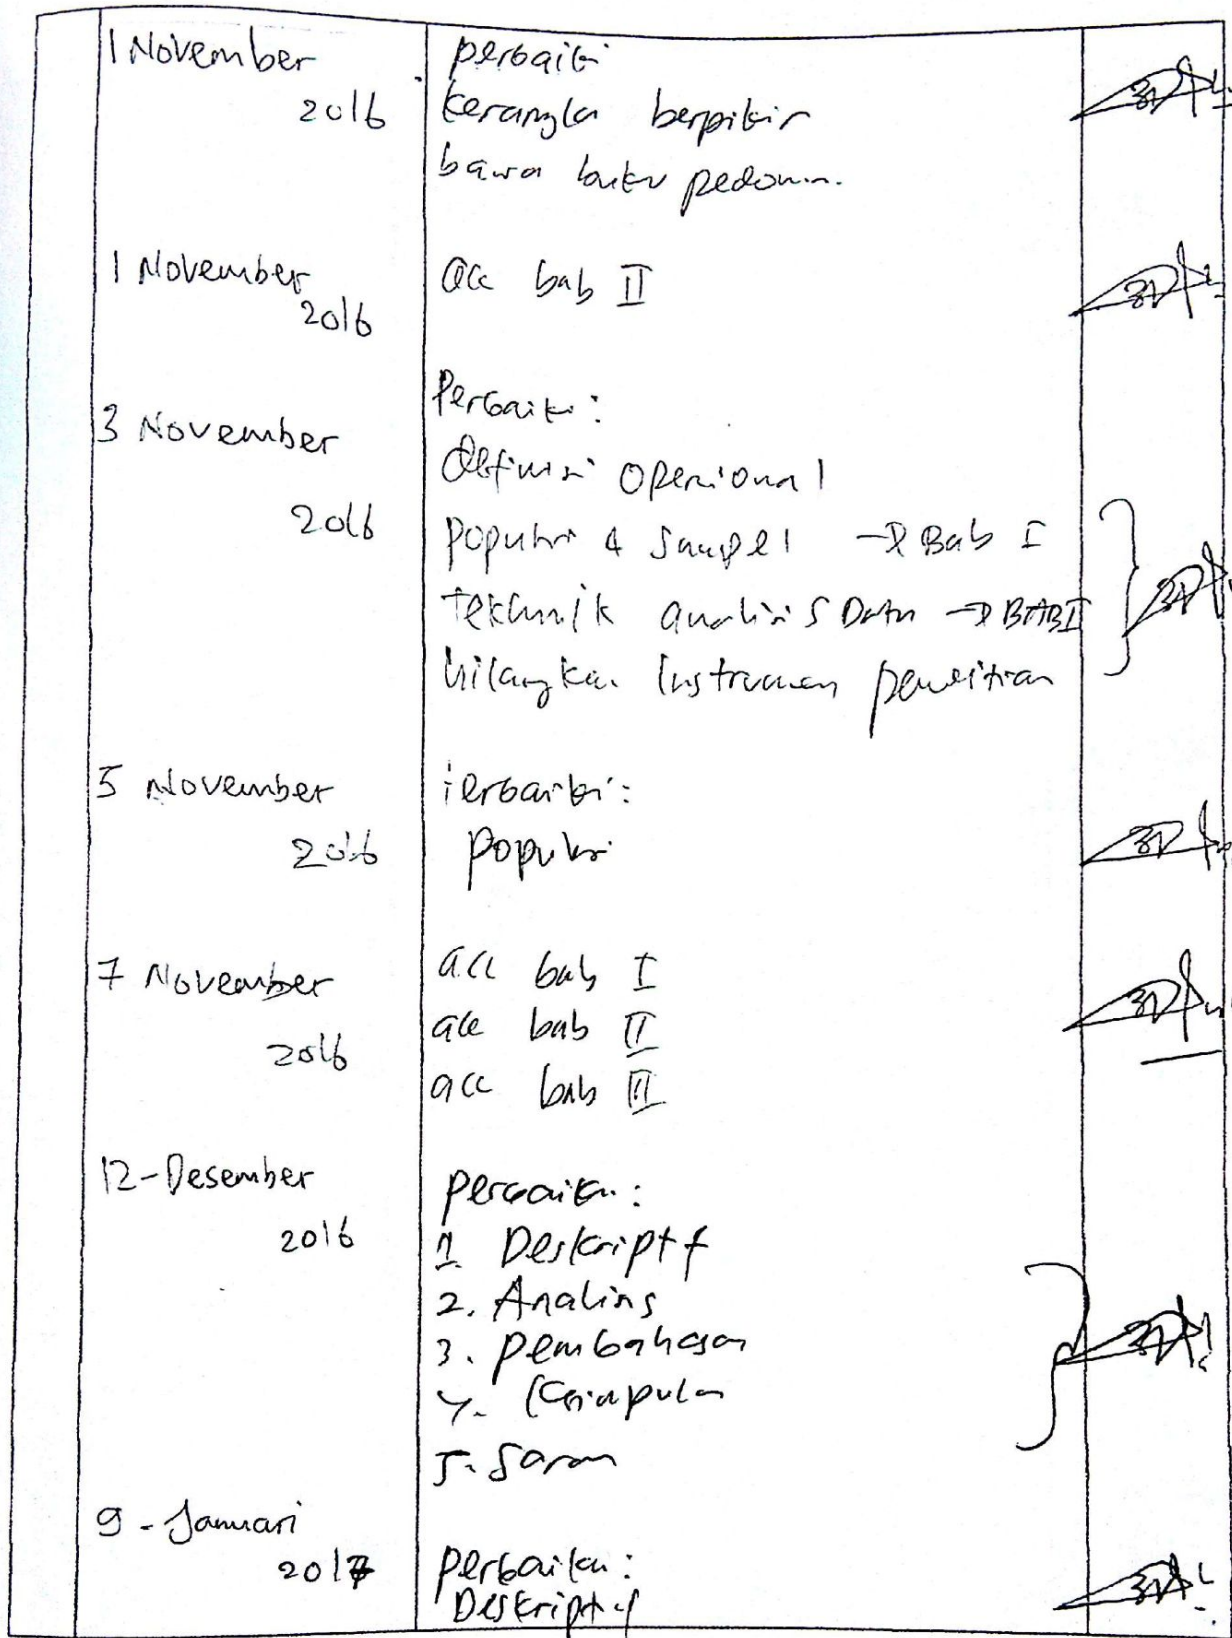 1 November
2016
perbaiki
kerangka berpikir
bawa buku pedoman.
1 November
2016
acc bab II
3 November
2016
Perbaiki:
Definisi Operional
populasi & Sampel → Bab I
tekhnik analisis Data → BAB I
hilangkan Instrumen penelitian
5 November
2016
perbaiki:
populasi
7 November
2016
acc bab I
acc bab II
acc bab III
12-Desember
2016
perbaiki:
1. Deskriptif
2. Analisis
3. pembahasan
4. Kesimpulan
5. Saran
9-Januari
2017
perbaikan:
Deskriptif